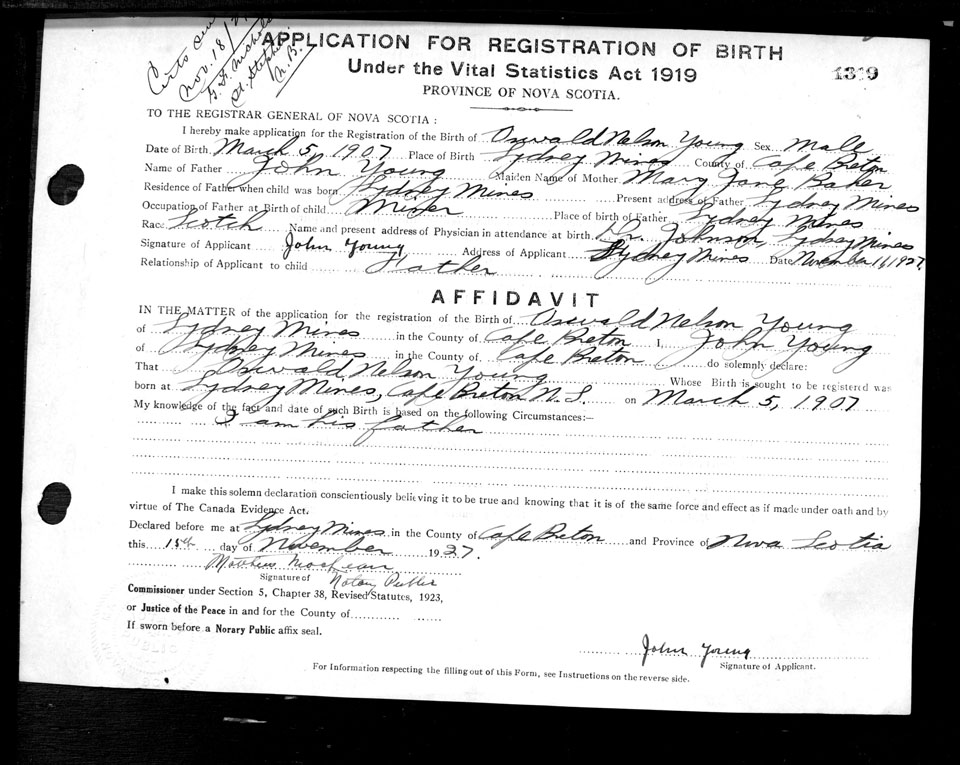 Certs sent
Nov. 18/27
St. Stephen
N. B.
APPLICATION FOR REGISTRATION OF BIRTH
Under the Vital Statistics Act 1919
1319
PROVINCE OF NOVA SCOTIA.
TO THE REGISTRAR GENERAL OF NOVA SCOTIA:
I hereby make application for the Registration of the Birth of Oswald Nelson Young Sex Male
Date of Birth March 5, 1907 Place of Birth Sydney Mines County of Cape Breton
Name of Father John Young Maiden Name of Mother Mary Jane Baker
Residence of Father when child was born Sydney Mines Present address of Father Sydney Mines
Occupation of Father at Birth of child Miner Place of birth of Father Sydney Mines
Race Scotch Name and present address of Physician in attendance at birth Dr. Johnson, Sydney Mines
Signature of Applicant John Young Address of Applicant Sydney Mines Date November 1927
Relationship of Applicant to child Father
AFFIDAVIT
IN THE MATTER of the application for the registration of the Birth of Oswald Nelson Young
of Sydney Mines in the County of Cape Breton I, John Young
of Sydney Mines in the County of Cape Breton do solemnly declare:
That Oswald Nelson Young Whose Birth is sought to be registered was
born at Sydney Mines, Cape Breton N.S. on March 5, 1907
My knowledge of the fact and date of such Birth is based on the following Circumstances:—
I am his father
I make this solemn declaration conscientiously believing it to be true and knowing that it is of the same force and effect as if made under oath and by
virtue of The Canada Evidence Act.
Declared before me at Sydney Mines in the County of Cape Breton and Province of Nova Scotia
this 15th day of November 1927.
Matthew
Signature of Notary Public
Commissioner under Section 5, Chapter 38, Revised Statutes, 1923,
or Justice of the Peace in and for the County of
If sworn before a Norary Public affix seal.
John Young
Signature of Applicant.
For Information respecting the filling out of this Form, see Instructions on the reverse side.